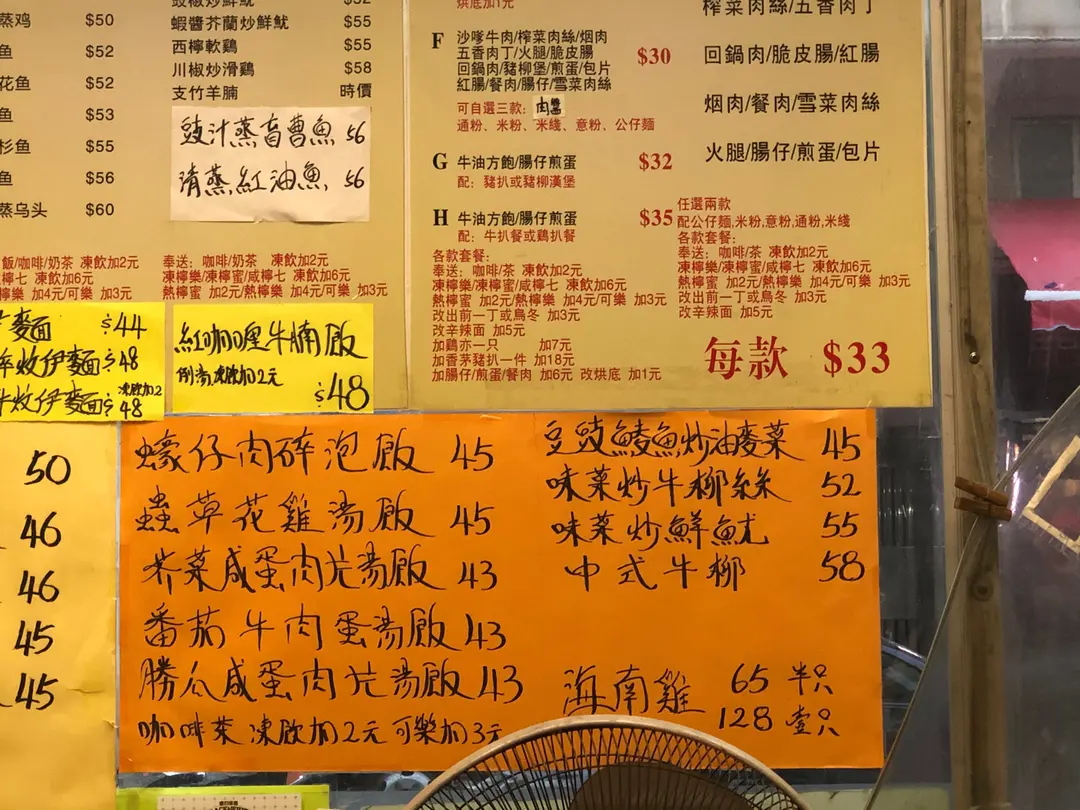 蒸鸡 $50
鱼 $52
花鱼 $52
鱼 $53
杉鱼 $55
鱼 $56
蒸乌头 $60
豉椒炒鮮魷 $52
蝦醬芥蘭炒鮮魷 $55
西檸軟鷄 $55
川椒炒滑鷄 $58
支竹羊腩 時價
豉汁蒸盲曹魚 56
清蒸紅油魚 56
飯/咖啡/奶茶 凍飲加2元
檸七 凍飲加6元
檸樂 加4元/可樂 加3元
奉送: 咖啡/奶茶 凍飲加2元
凍檸樂/凍檸蜜/咸檸七 凍飲加6元
熱檸蜜 加2元/熱檸樂 加4元/可樂 加3元
烘底加1元
F 沙嗲牛肉/榨菜肉絲/烟肉
五香肉丁/火腿/脆皮腸 $30
回鍋肉/豬柳堡/煎蛋/包片
紅腸/餐肉/腸仔/雪菜肉絲
可自選三款: 肉醬
通粉、米粉、米綫、意粉、公仔麵
G 牛油方飽/腸仔煎蛋 $32
配: 豬扒或豬柳漢堡
H 牛油方飽/腸仔煎蛋 $35
配: 牛扒餐或鷄扒餐
各款套餐:
奉送: 咖啡/茶 凍飲加2元
凍檸樂/凍檸蜜/咸檸七 凍飲加6元
熱檸蜜 加2元/熱檸樂 加4元/可樂 加3元
改出前一丁或烏冬 加3元
改辛辣面 加5元
加鷄亦一只 加7元
加香茅豬扒一件 加18元
加腸仔/煎蛋/餐肉 加6元 改烘底 加1元
榨菜肉絲/五香肉丁
回鍋肉/脆皮腸/紅腸
烟肉/餐肉/雪菜肉絲
火腿/腸仔/煎蛋/包片
任選兩款
配公仔麵,米粉,意粉,通粉,米綫
各款套餐:
奉送: 咖啡/茶 凍飲加2元
凍檸樂/凍檸蜜/咸檸七 凍飲加6元
熱檸蜜 加2元/熱檸樂 加4元/可樂 加3元
改出前一丁或烏冬 加3元
改辛辣面 加5元
每款 $33
麵 $44
炆伊麵 $48
凍飲加2
炆伊麵 $48
紅咖喱牛腩飯
例湯凍飲加2元
$48
50
46
46
45
45
蠔仔肉碎泡飯 45
蟲草花雞湯飯 45
芥菜咸蛋肉片湯飯 43
番茄牛肉蛋湯飯 43
勝瓜咸蛋肉片湯飯 43
咖啡茶凍飲加2元可樂加3元
豆豉鯪魚炒油麥菜 45
味菜炒牛柳絲 52
味菜炒鮮魷 55
中式牛柳 58
海南雞 65 半只
128 壹只